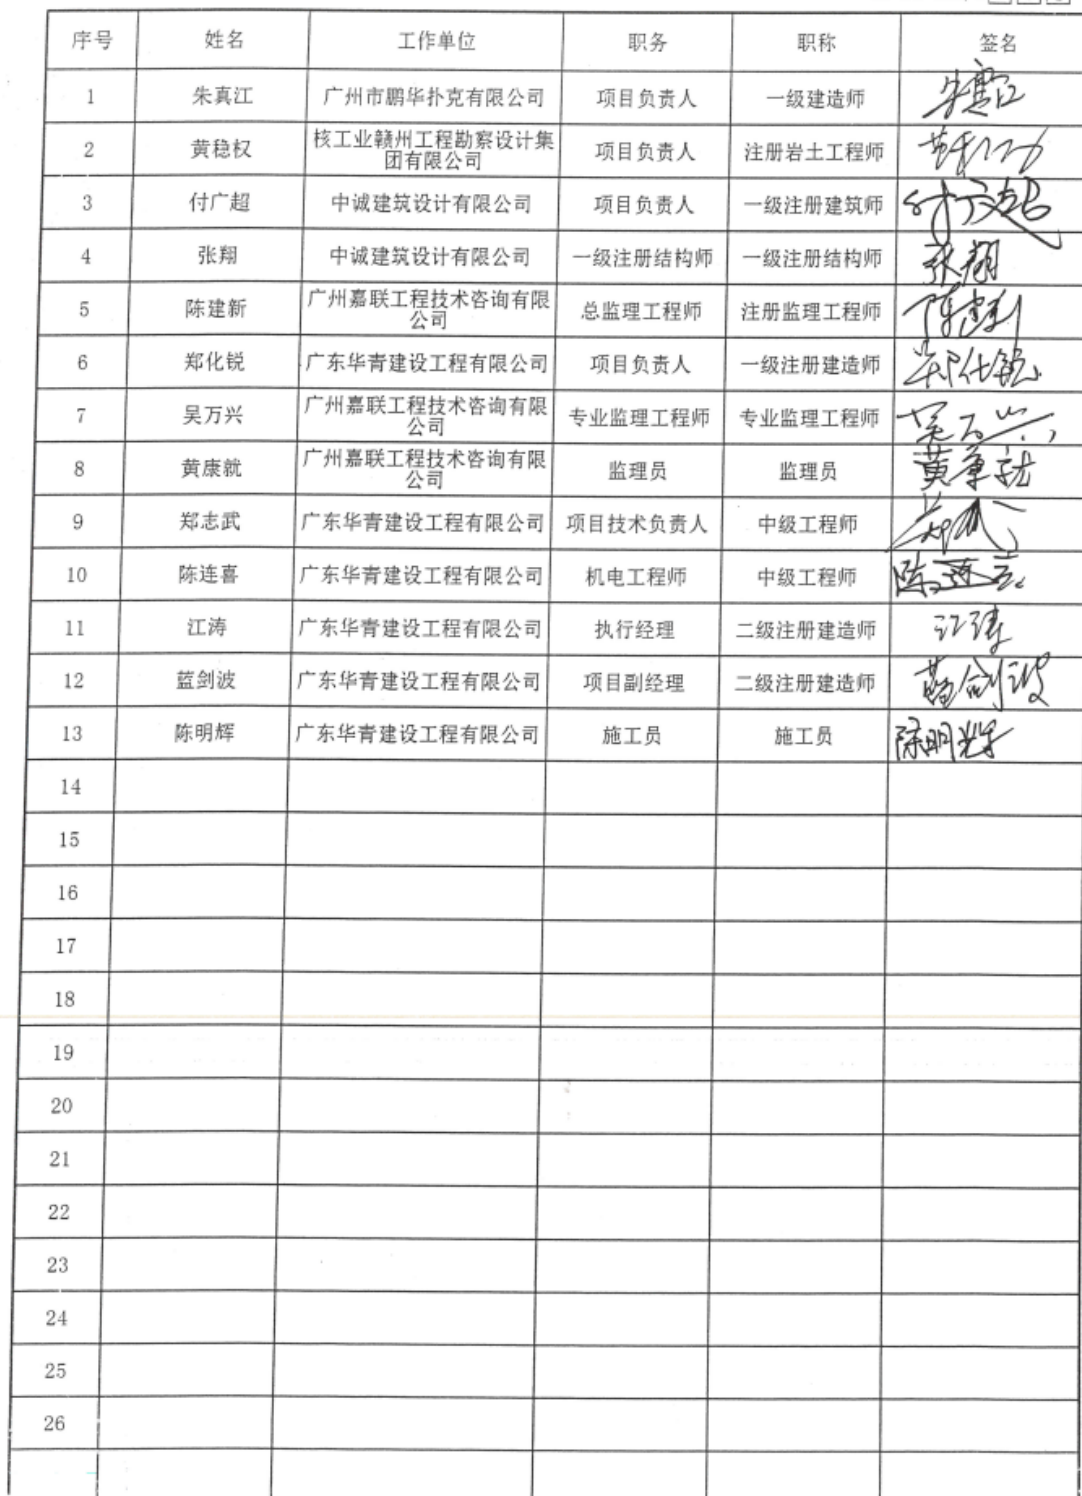 序号 姓名 工作单位 职务 职称 签名
1 朱真江 广州市鹏华扑克有限公司 项目负责人 一级建造师
2 黄稳权 核工业赣州工程勘察设计集
团有限公司 项目负责人 注册岩土工程师
3 付广超 中诚建筑设计有限公司 项目负责人 一级注册建筑师 付广超
4 张翔 中诚建筑设计有限公司 一级注册结构师 一级注册结构师 张翔
5 陈建新 广州嘉联工程技术咨询有限
公司 总监理工程师 注册监理工程师 陈建新
6 郑化锐 广东华青建设工程有限公司 项目负责人 一级注册建造师 郑化锐
7 吴万兴 广州嘉联工程技术咨询有限
公司 专业监理工程师 专业监理工程师 吴万兴
8 黄康兢 广州嘉联工程技术咨询有限
公司 监理员 监理员
9 郑志武 广东华青建设工程有限公司 项目技术负责人 中级工程师
10 陈连喜 广东华青建设工程有限公司 机电工程师 中级工程师 陈连喜
11 江涛 广东华青建设工程有限公司 执行经理 二级注册建造师 江涛
12 蓝剑波 广东华青建设工程有限公司 项目副经理 二级注册建造师 蓝剑波
13 陈明辉 广东华青建设工程有限公司 施工员 施工员 陈明辉
14
15
16
17
18
19
20
21
22
23
24
25
26